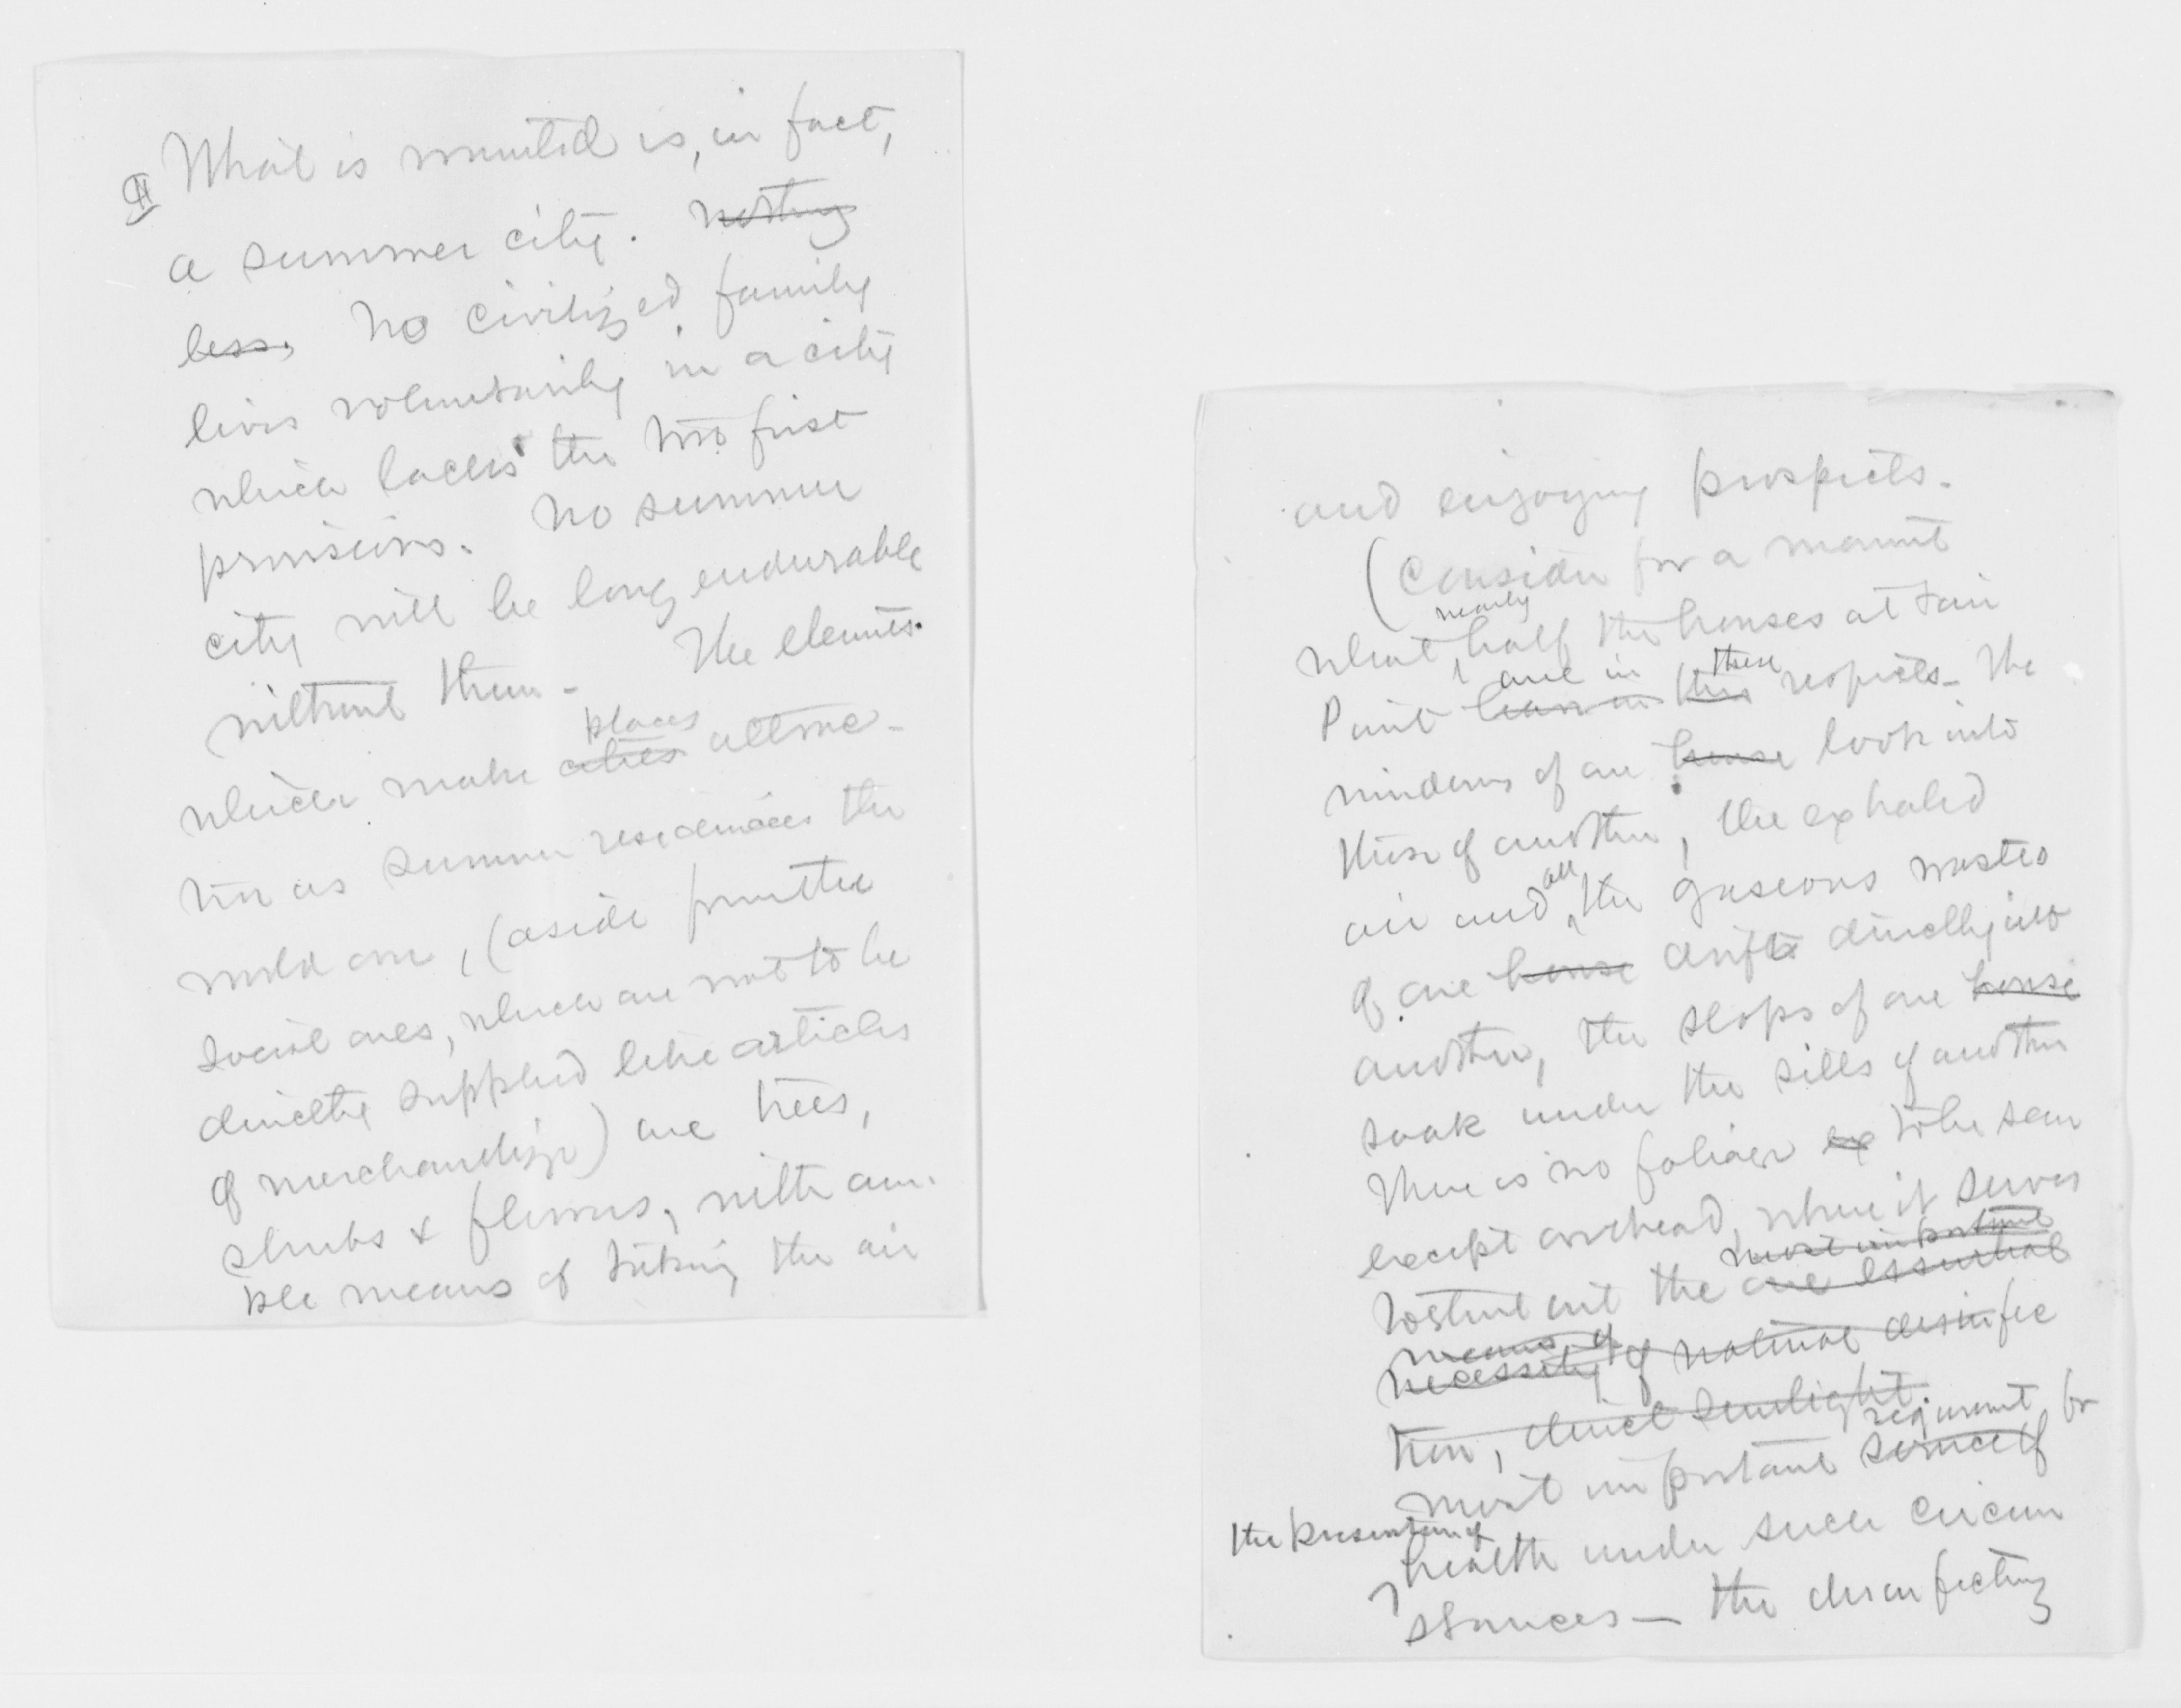 ¶ What is wanted is, in fact,
a summer city. nothing
less. No civilized family
lives voluntarily in a city
which lacks the two first
provisions. No summer
city will be long endurable
without them - The elements
which make cities places attrac-
tive as summer residences the
world over, (aside from the
social ones, which are not to be
directly supplied like articles
of merchandize) are trees,
shrubs & flowers, with am-
ple means of taking the air
and enjoying prospects.
(Consider for a moment
nearly
what half the houses at
are in these
Point this respects - The
windows of one house look into
those of another, the exhaled
air and all the gaseous wastes
of one house drifts directly into
another, the slops of one house
soak under the sills of another
There is no foliage ex to be seen
except overhead, where it serves
most important
to shut out the one essential
means of
necessity of natural disinfec
tion, direct sunlight.
requirement for
most important service of
the preservation of
health under such circum
stances - the disinfecting